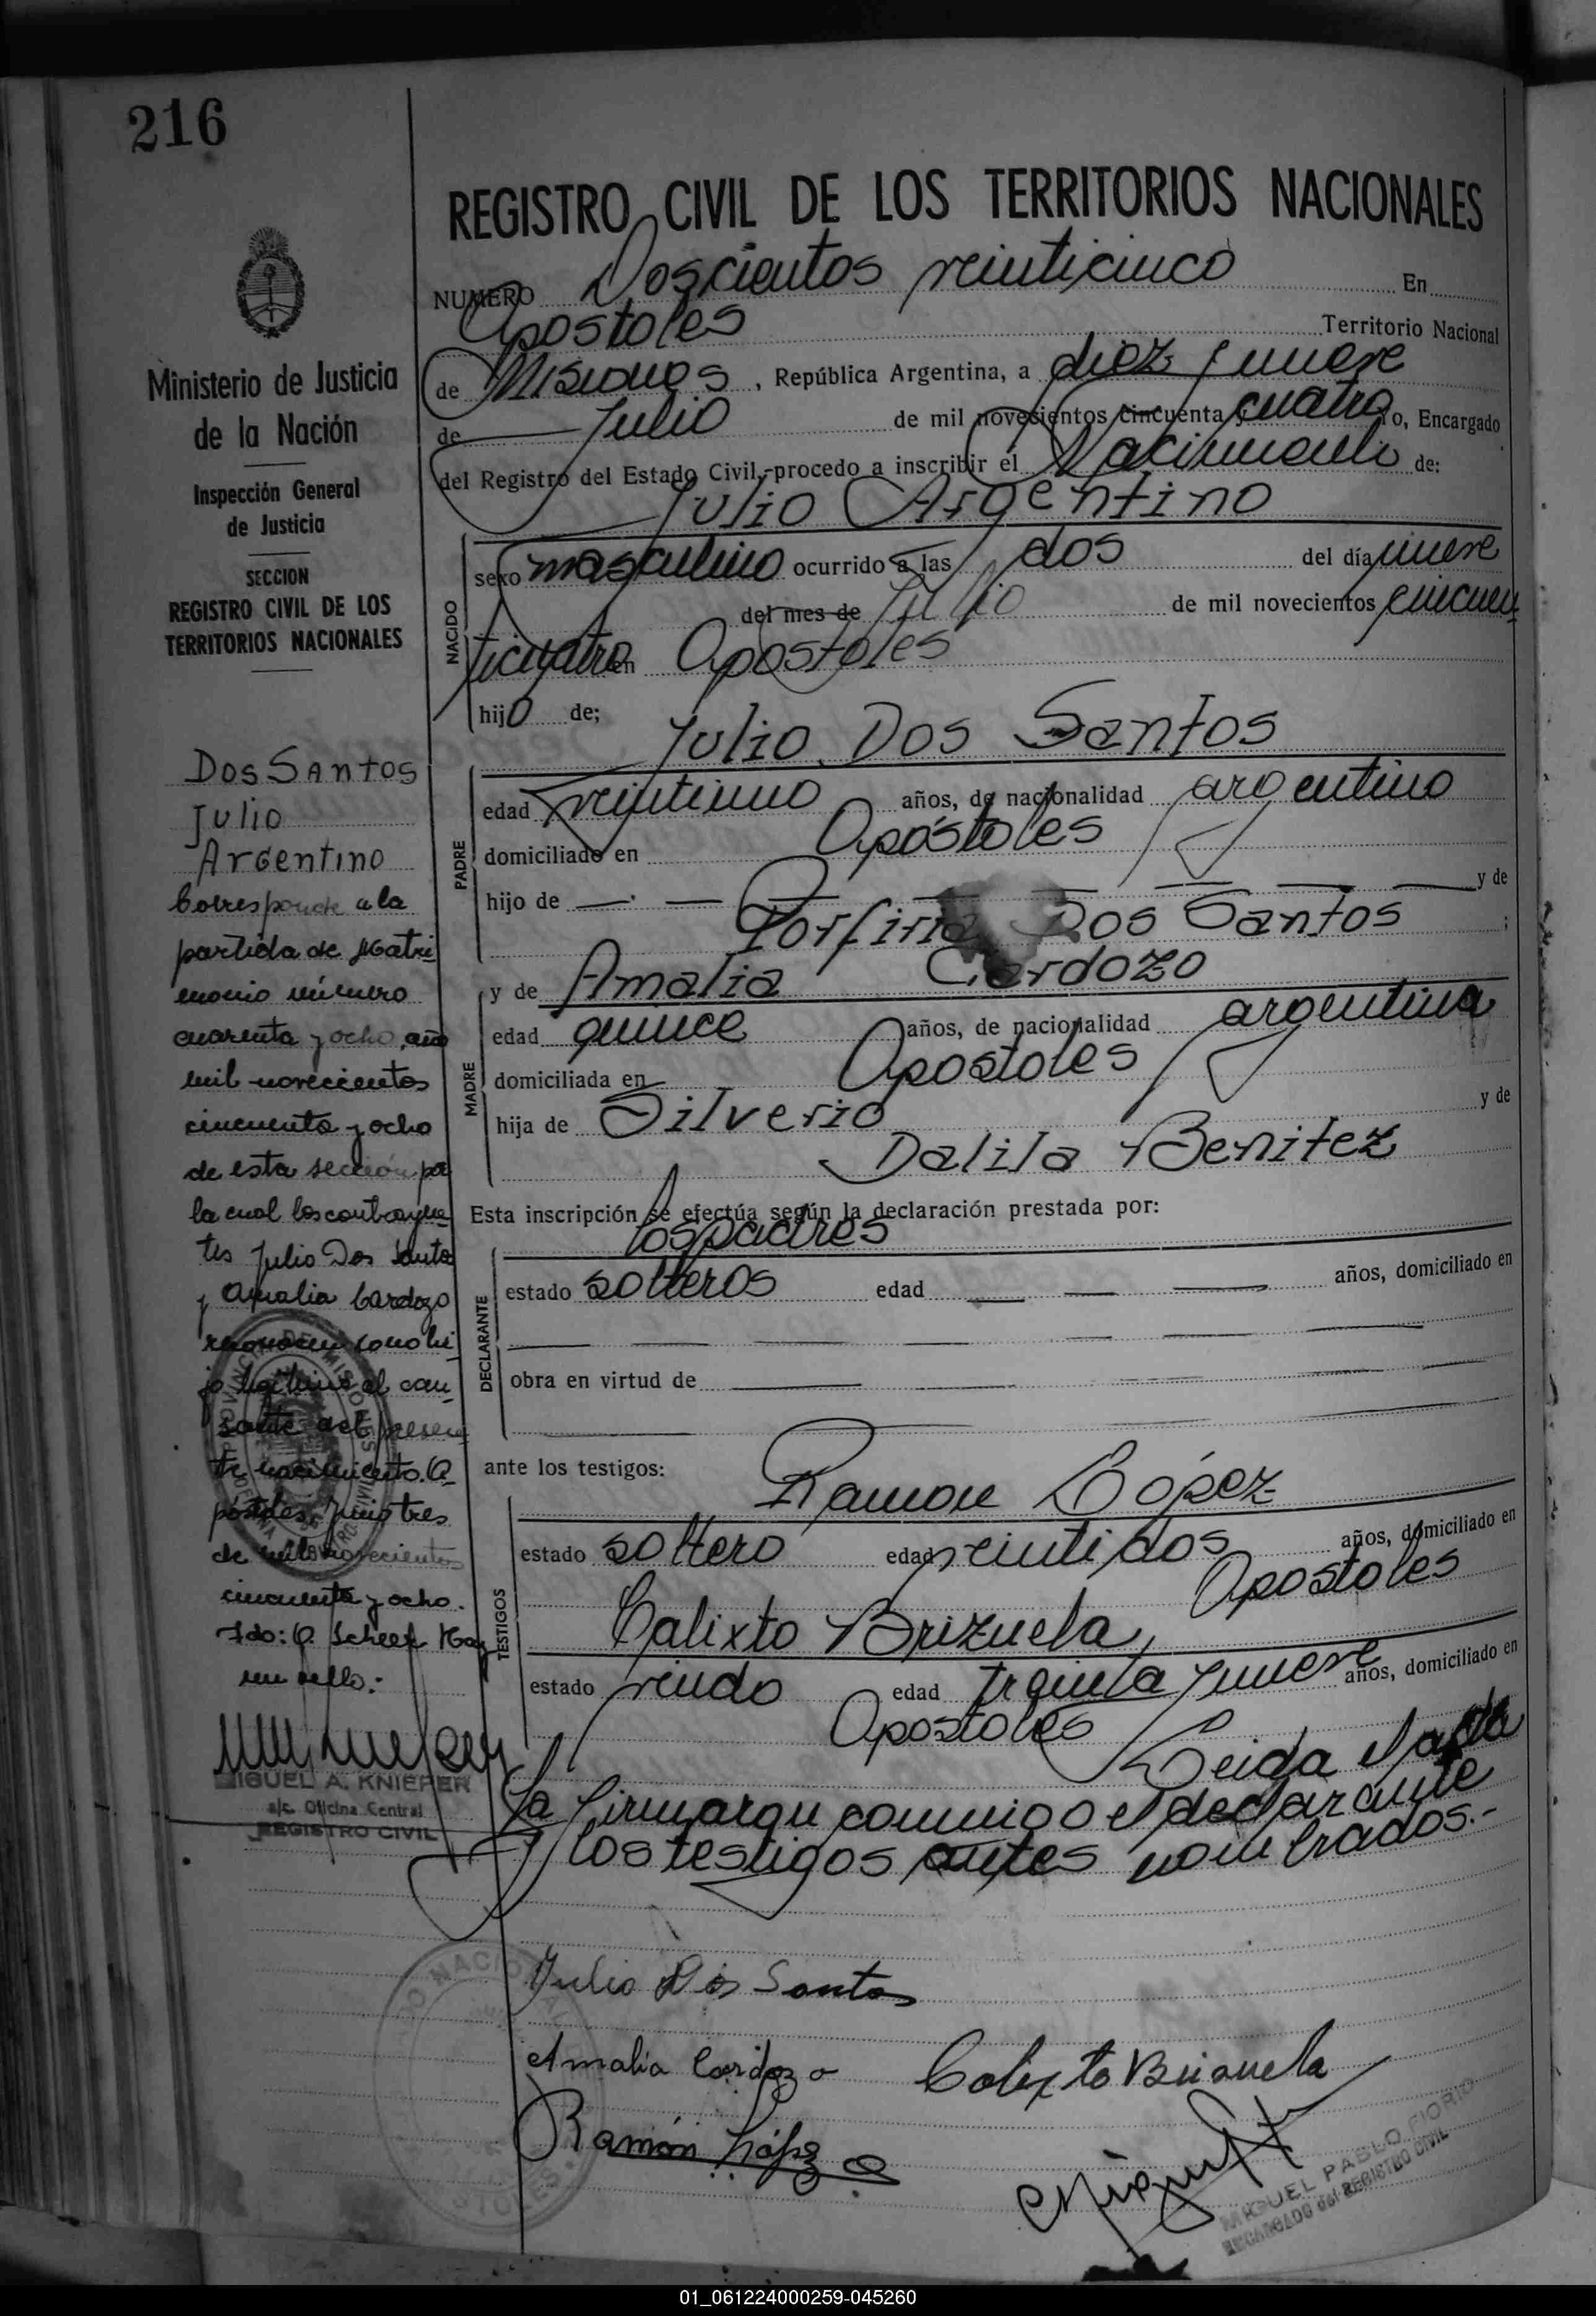 216
REGISTRO CIVIL DE LOS TERRITORIOS NACIONALES
NUMERO Doscientos veinticinco En
Apostoles Territorio Nacional
de Misiones, República Argentina, a diez y nueve
de Julio de mil novecientos cincuenta y cuatro, Encargado
del Registro del Estado Civil, procedo a inscribir el Nacimiento de:
Julio Argentino
NACIDO
sexo masculino ocurrido a las dos del día nueve
del mes de Julio de mil novecientos cincuen
ticuatro en Apostoles
hijo de;
Julio Dos Santos
PADRE
edad veintiuno años, de nacionalidad argentino
domiciliado en Apóstoles
hijo de — — — — — — — y de
Porfiria Dos Santos ;
y de Amalia Cardozo
MADRE
edad quince años, de nacionalidad argentina
domiciliada en Apostoles
hija de Silverio y de
Dalila Benitez
Esta inscripción se efectúa según la declaración prestada por:
los padres
DECLARANTE
estado solteros edad — — — años, domiciliado en
obra en virtud de
ante los testigos:
Ramon López
TESTIGOS
estado soltero edad veintidos años, domiciliado en
Apostoles
Calixto Brizuela,
estado viudo edad treinta y nueve años, domiciliado en
Apostoles Leida el acta
la firmaran conmigo el declarante
y los testigos antes nombrados.-
Julio Dos Santos
Amalia Cardozo Calixto Brizuela
Ramón López
MIGUEL PABLO FIORIO
ENCARGADO del REGISTRO CIVIL
Ministerio de Justicia
de la Nación
Inspección General
de Justicia
SECCION
REGISTRO CIVIL DE LOS
TERRITORIOS NACIONALES
Dos Santos
Julio
Argentino
Corresponde a la
partida de Matri
monio número
cuarenta y ocho, año
mil novecientos
cincuenta y ocho
de esta sección por
la cual los contrayen
tes Julio Dos Santos
y Amalia Cardozo
reconocen como hi
jo legítimo al cau
sante del presen
te nacimiento. A
póstoles, Junio tres
de mil novecientos
cincuenta y ocho.
Fdo: Hay
un sello.-
MIGUEL A. KNIEPER
a/c. Oficina Central
REGISTRO CIVIL
01_061224000259-045260